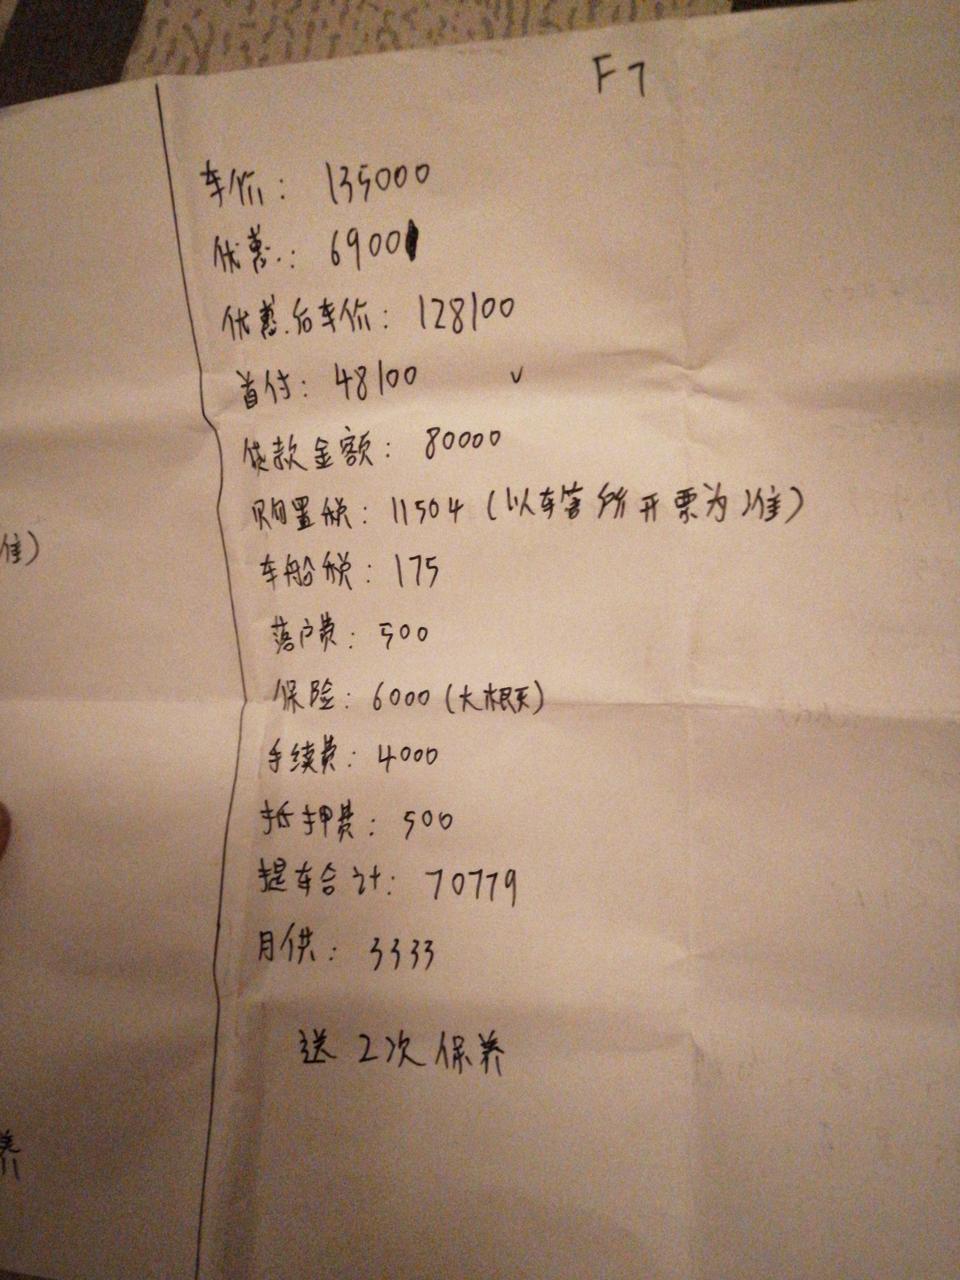 F7
车价：135000
优惠：6900
优惠后车价：128100
首付：48100 √
贷款金额：80000
购置税：11504（以车管所开票为准）
车船税：175
落户费：500
保险：6000（大概）
手续费：4000
抵押费：500
提车合计：70779
月供：3333
送2次保养
准）
养